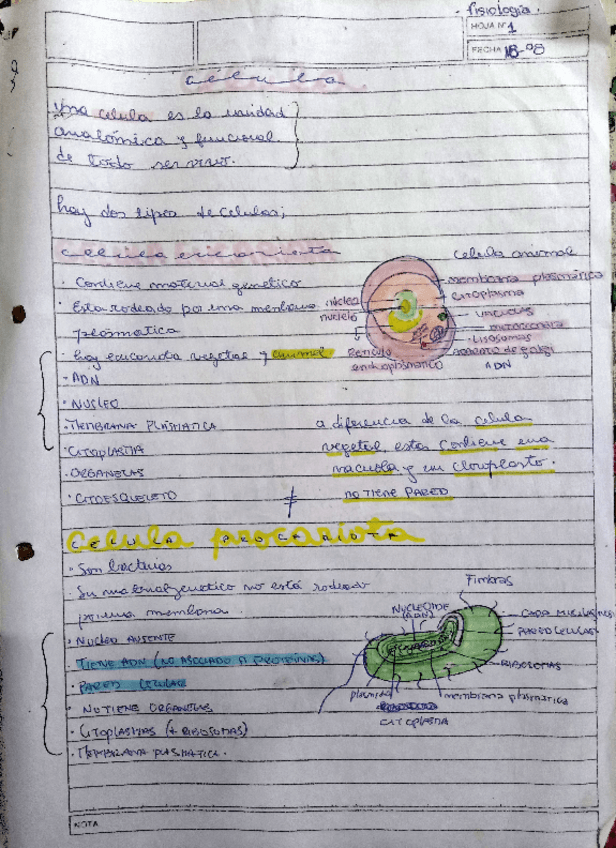 Fisiología.
HOJA Nº 1
FECHA 18-08
celula.
Una celula es la unidad
anatómica y funcional
de todo ser vivo.
hay dos tipos de celulas;
celula eucariota
celula animal
· Contiene material genetico
· Esta rodeado por una membrana
plasmatica
· hay eucariota vegetal y animal
- ADN
· NUCLEO
· MEMBRANA PLASMATICA
· CITOPLASMA
· ORGANELAS
· CITOESQUELETO
membrana plasmática
citoplasma
vacuolas
Lisosomas
aparato de golgi
ADN
núcleo
Reticulo
endoplasmatico
a diferencia de la celula
vegetal esta contiene una
vacuola y un cloroplasto.
NO TIENE PARED
≠
Celula procariota
CELULA PROCARIOTA
· Son bacterias
· Su material genetico no está rodeado
por una membrana.
· NUCLEO AUSENTE
· TIENE ADN (NO ASOCIADO A PROTEINAS)
· PARED CELULAR
· NO TIENE ORGANELAS
· CITOPLASMAS (+ RIBOSOMAS)
· MEMBRANA PLASMATICA.
Fimbras
NUCLEOIDE
(ADN)
PARED CELULAR
RIBOSOMAS
plasmido
membrana plasmática
CITOPLASMA
NOTA